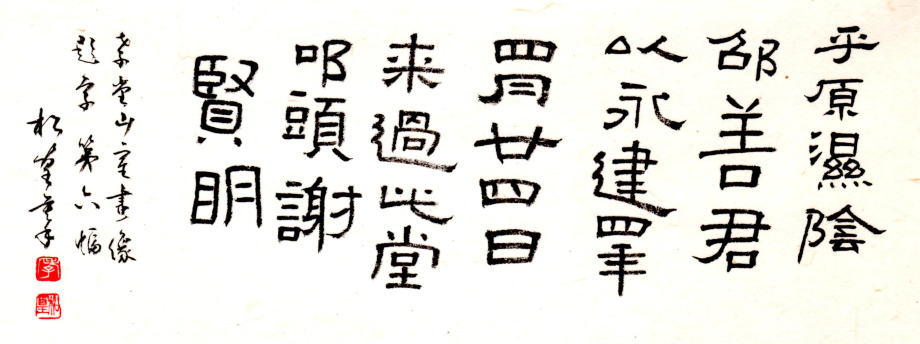 平原濕陰
邵善君
以永建四年
四月廿四日
来過此堂
叩頭謝
賢明
孝堂山室畫像
題字第六幅